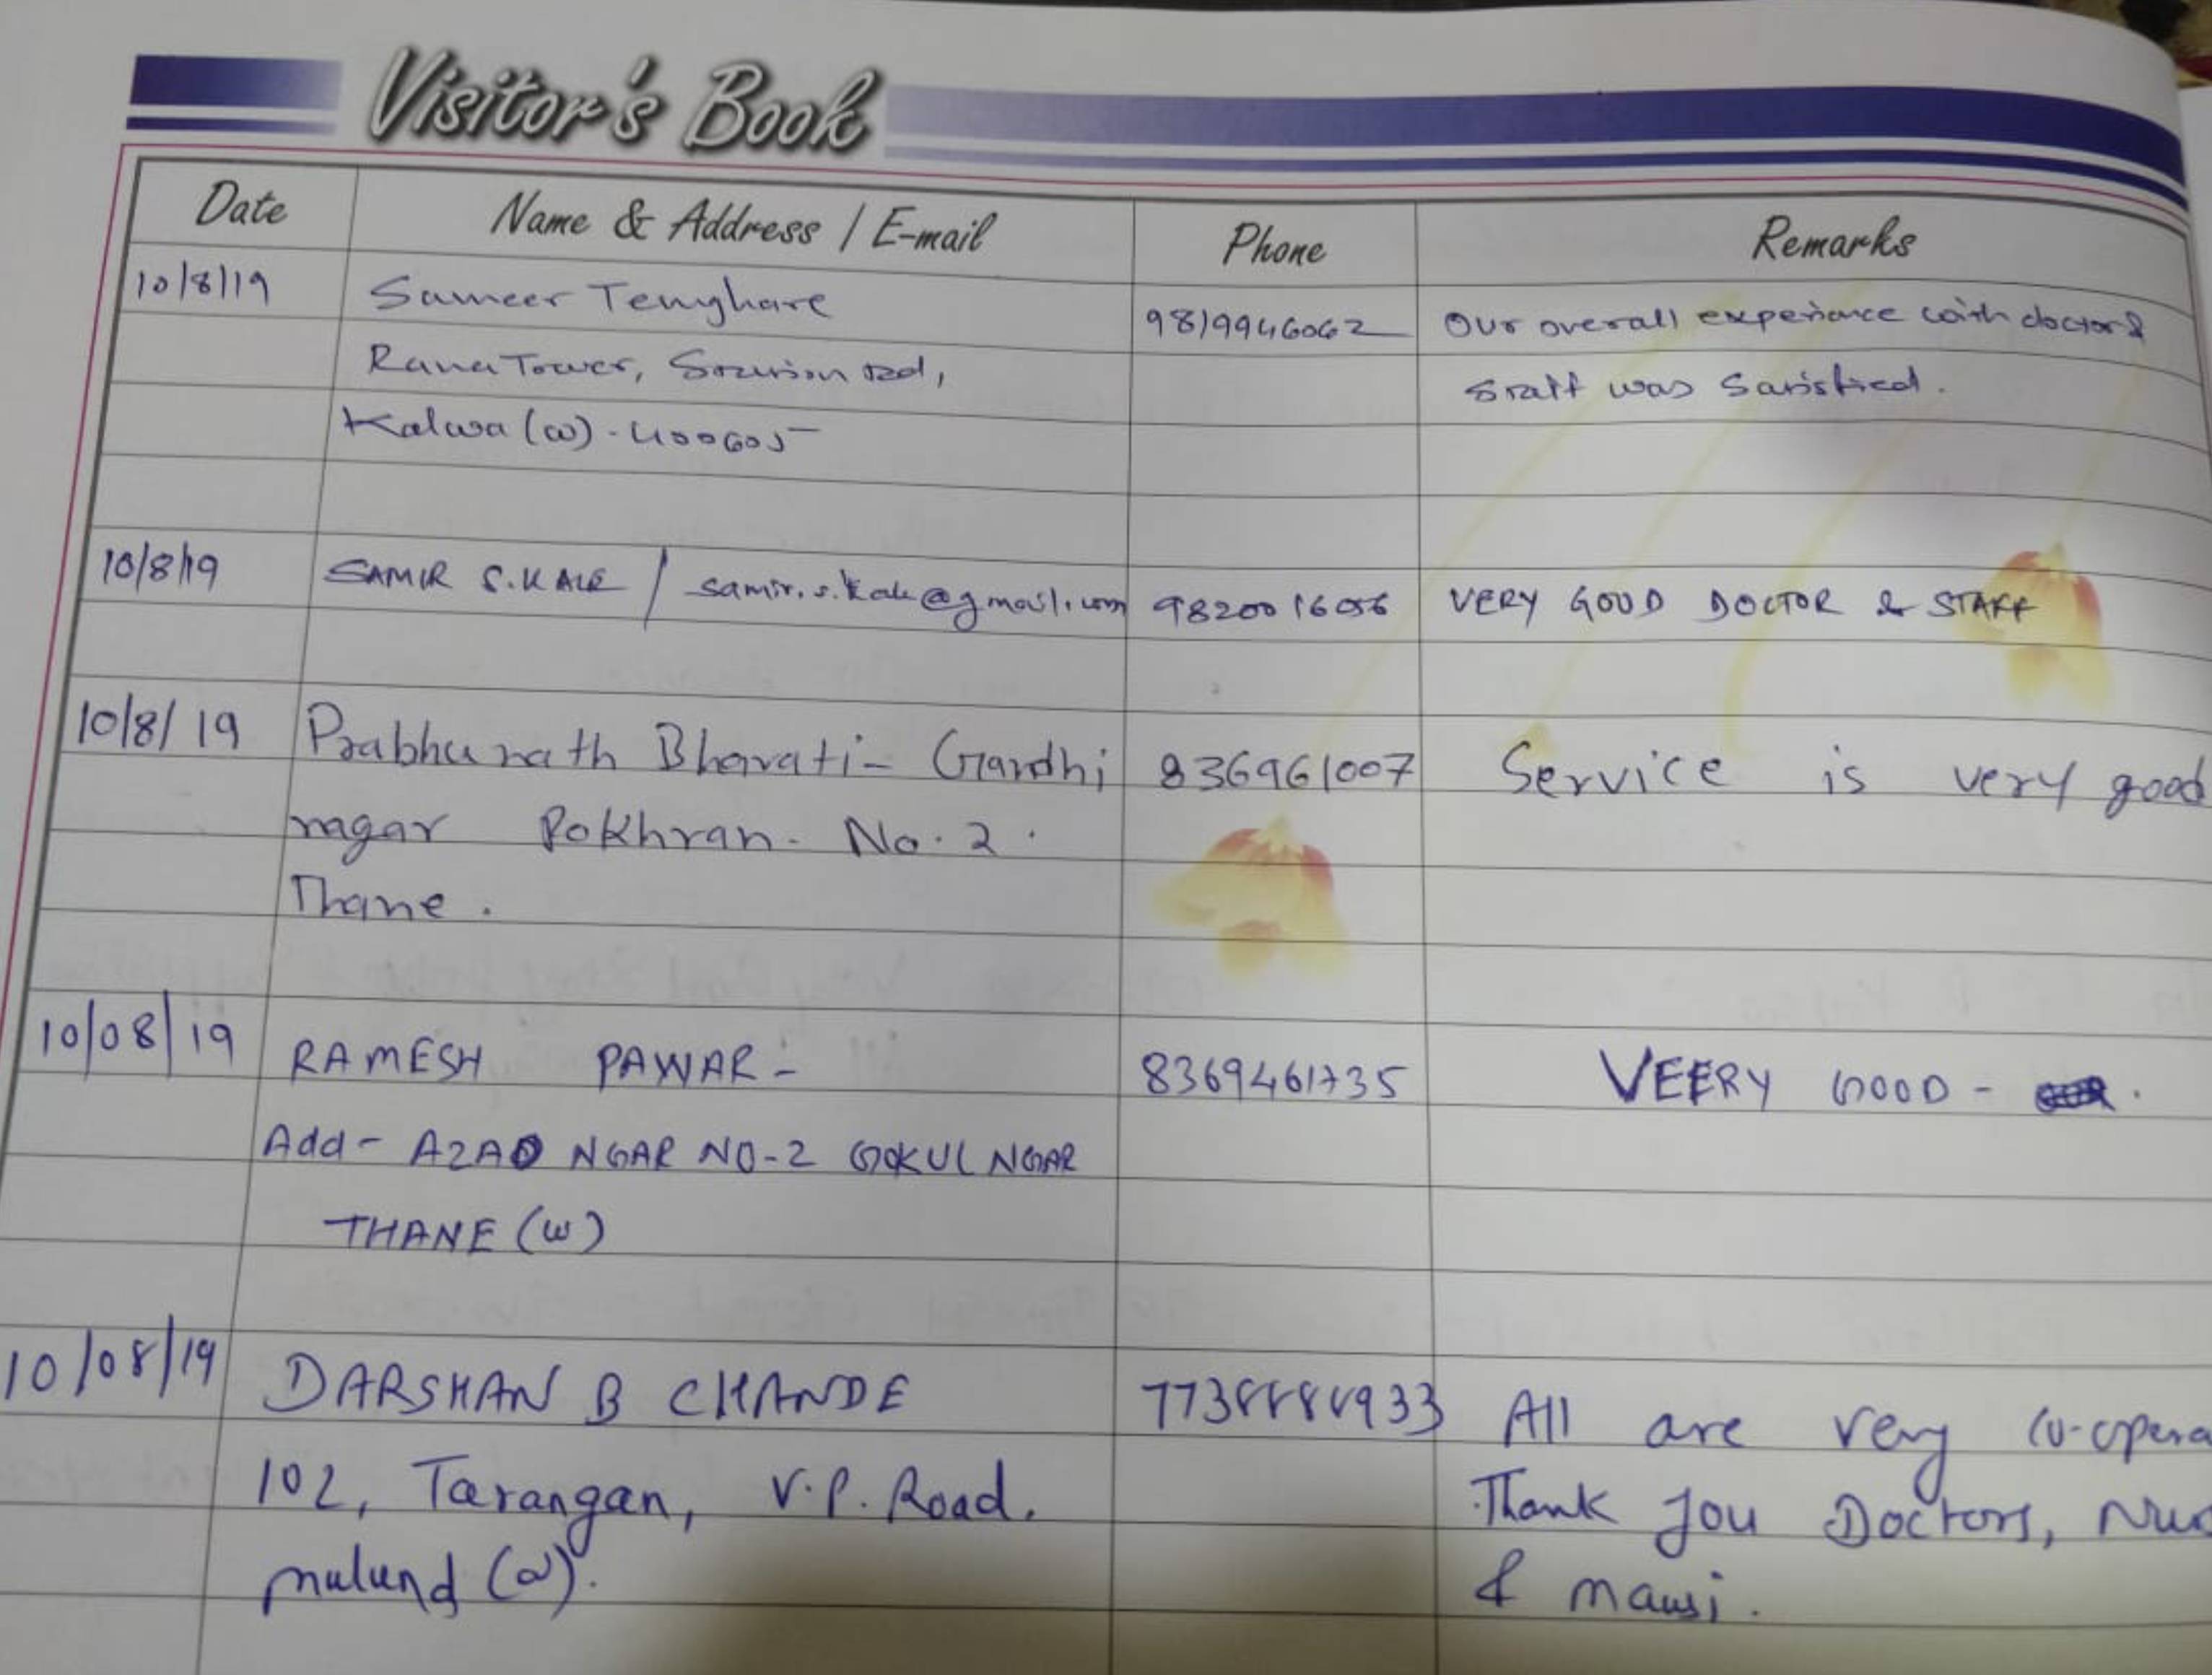 Visitor's Book
Date Name & Address / E-mail Phone Remarks
10/8/19 Sameer Tenghare 9819946062 Our overall experiance with doctor &
Rana Tower, Rd, staff was Satisfied.
Kalwa (w) - 400605
10/8/19 SAMIR S. KALE / samir.s.kale@gmail.com VERY GOOD DOCTOR & STAFF
10/8/19 Prabhunath Bharati - Gandhi 836961007 Service is very good
nagar Pokhran - No. 2.
Thane.
10/08/19 RAMESH PAWAR - 8369461735 VEERY GOOD -
Add - AZAD NGAR NO-2 GOKUL NGAR
THANE (W)
10/08/19 DARSHAN B CHANDE All are very co-opera
102, Tarangan, V.P. Road. Thank you Doctors, Nur
mulund (w). & mausi.